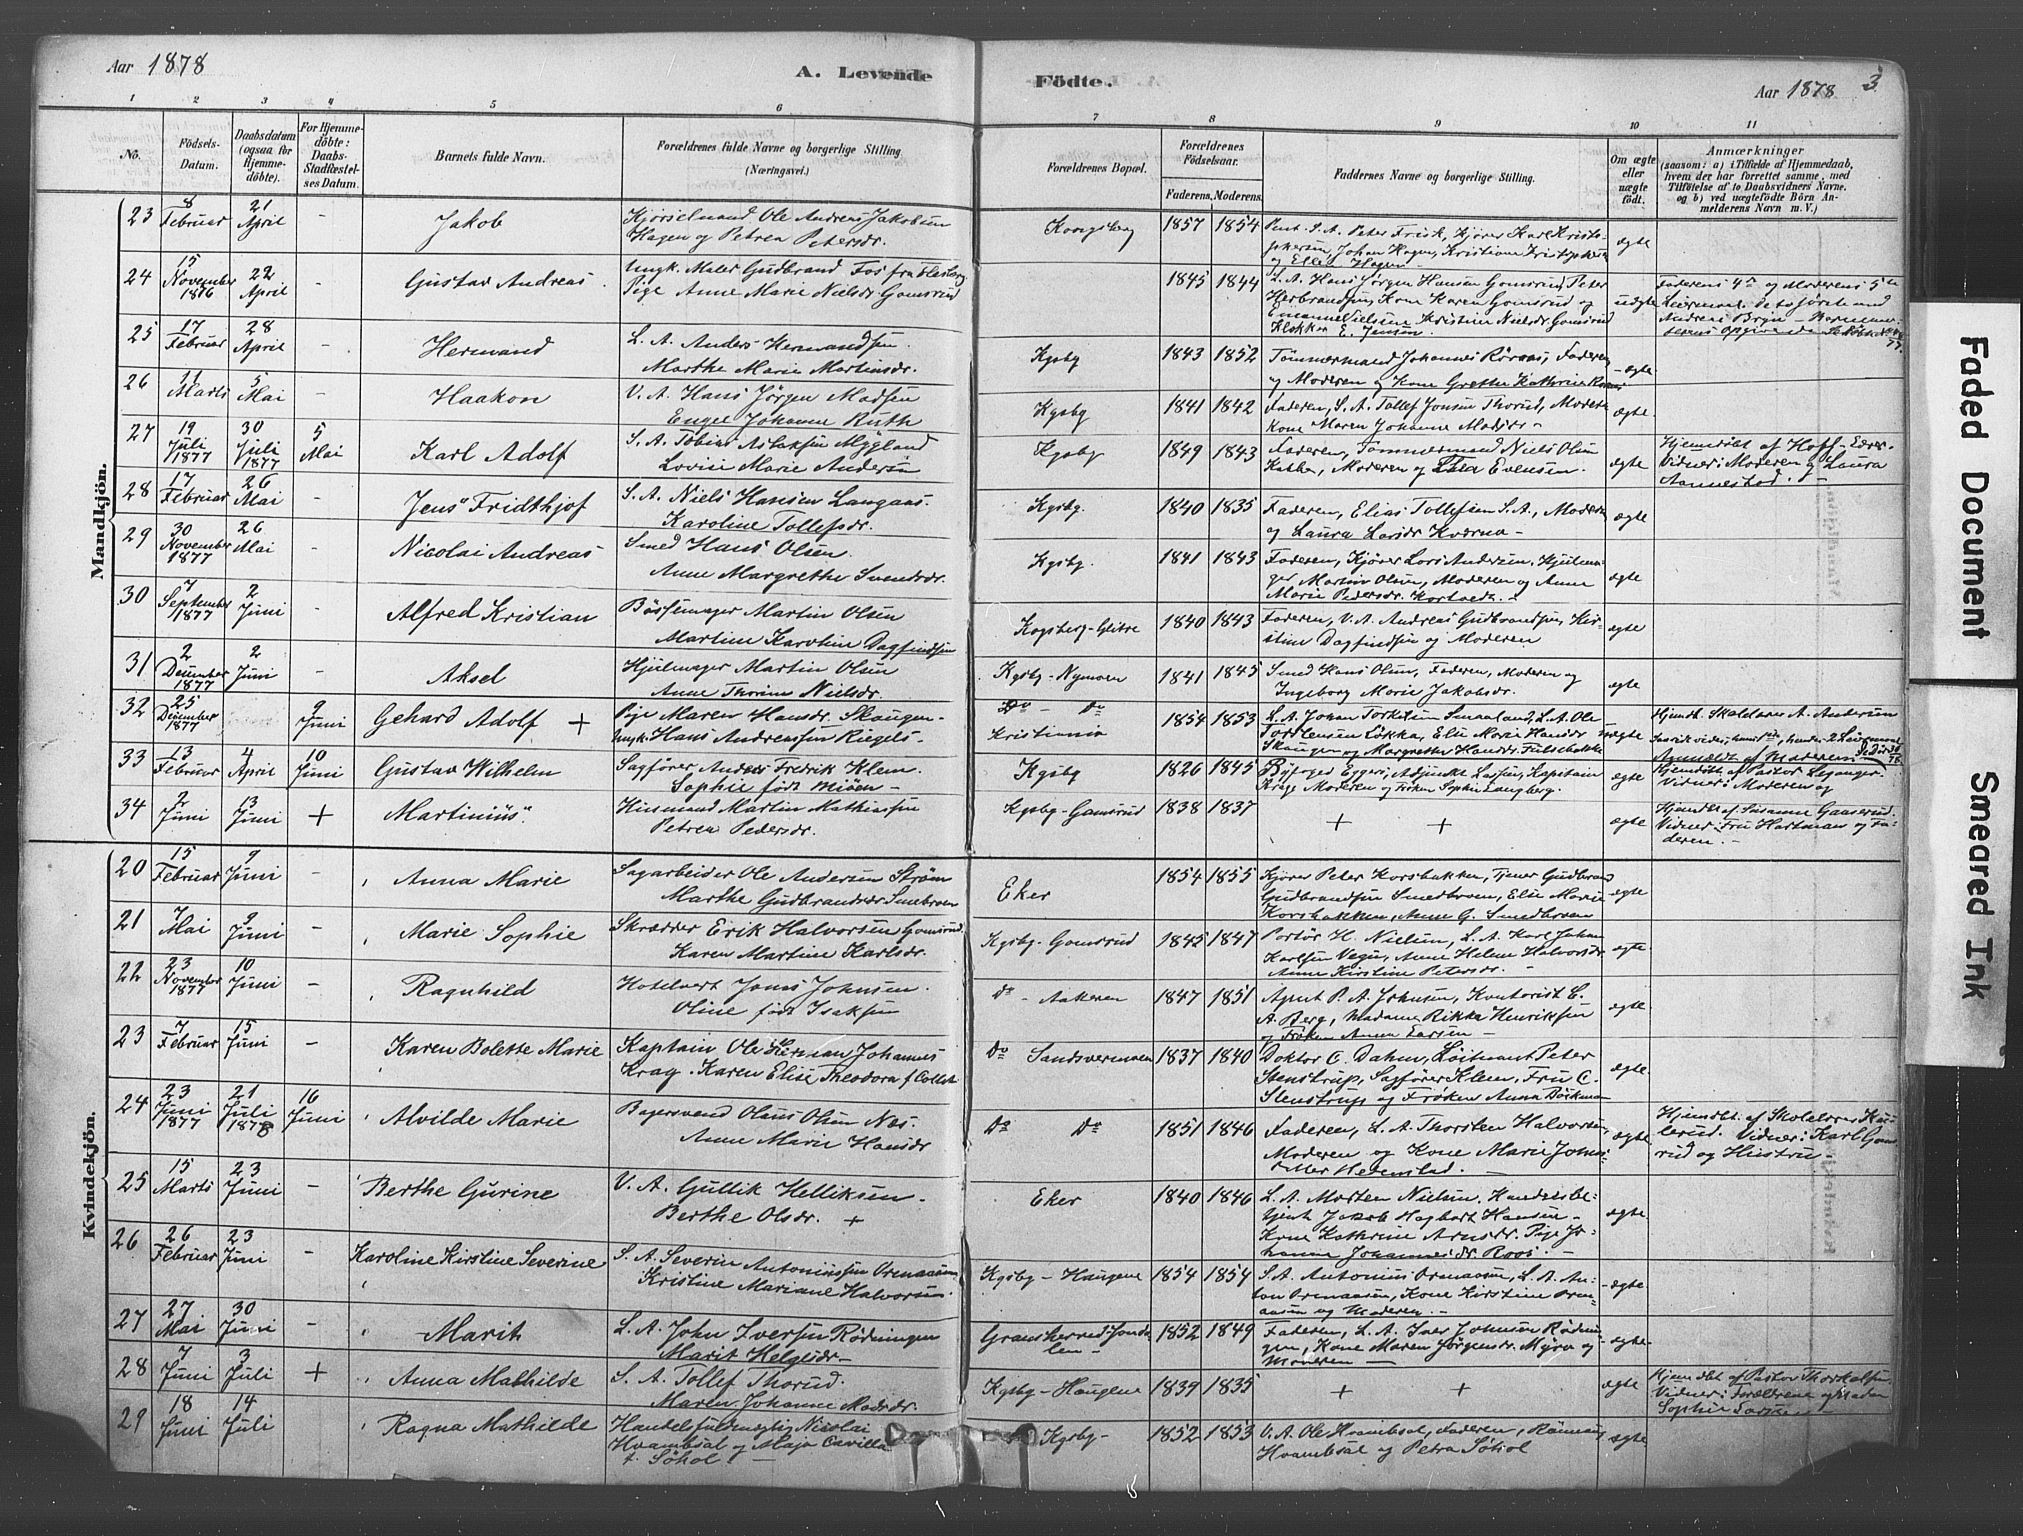 Aar 1878
A. Levende
Födte.
Aar 1878
3
1 2 3 4 5 6 7 8 9 10 11
No.
Födsels-Datum.
Daabsdatum (ogsaa for Hjemme-döbte).
For Hjemme-döbte: Daabs-Stadfæstelses Datum.
Barnets fulde Navn.
Forældrenes fulde Navne og borgerlige Stilling. (Næringsvei.)
Forældrenes Bopæl.
Forældrenes Födselsaar.
Faderens. Moderens.
Faddernes Navne og borgerlige Stilling.
Om ægte eller uægte födt.
Anmærkninger (saasom: a) i Tilfælde af Hjemmedaab, hvem der har forrettet samme, med Tilföielse af to Daabsvidners Navne, og b) ved uægtefödte Börn Anmelderens Navn m. V.)
Mandkjön.
23 8 Februar 21 April - Jakob Kjørselmand Ole Andreas Jakobsen Hagen og Petrea Petersdr. Kongsberg 1857 1854 S. A. Peter Frisk, Kjører Karl Kristophersen, Johan Hagen, Kristiane Kristophersen og Elli Hagen ægte
24 15 November 1876 22 April - Gustav Andreas Ungk. Maler Gudbrand Fos fra Flesberg Pige Anne Marie Nielsdr Gomsrud 1845 1844 L. A. Hans Jørgen Hansen Gomsrud, Peter Herbrandsen, Kone Karen Gomsrud og Emanuel Nielsen Kristine Nielsdr. Gomsrud Klokker E. Jensen uægte Faderens 4de og Moderens 5te Leiermaal.
25 17 Februar 28 April - Hermand L. A. Anders Hermandsen Marthe Marie Martinsdr. Kgsbg 1843 1852 Tømmermand Johannes Røraas, Faderen og Moderen og Kone Grethe Kathrine ægte
26 11 Marts 5 Mai - Haakon V. A. Hans Jørgen Madsen Engel Johanne Ruth Kgsbg 1841 1842 Faderen, S. A. Tollef Jonsen Thorud, Moderen Kone Maren Johanne Madsdr - ægte
27 19 Juli 1877 30 Juli 1877 5 Mai Karl Adolf S. A. Tobias Aslaksen Mygland Lovise Marie Andersen Kgsbg 1849 1843 Faderen, Tømmermand Niels Olsen Moderen og Evensen. ægte Hjemdøbt af Hoff. Vidner: Moderen og Laura Aannestad. -
28 17 Februar 26 Mai - Jens Fridthjof S. A. Niels Hansen Langaas. Karoline Tollefsdr. Kgsbg. 1840 1835 Faderen, Elias Tollefsen S. A., Moderen og Laura Larsdr Kværna - ægte
29 30 November 1877 26 Mai - Nicolai Andreas Smed Hans Olsen. Anne Margrethe Svendsdr. Kgsbg. 1841 1843 Faderen, Kjører Lars Andersen, Hjulmager Martin Olsen, Moderen og Anne Marie Pedersdr. ægte
30 7 September 1877 2 Juni - Alfred Kristian Bøssemager Martin Olsen Martine Karoline Dagfindsen Kogsberg-Glitre 1840 1843 Faderen, V. A. Andreas Gudbrandsen, Kirstine Dagfindsen og Moderen - ægte
31 2 December 1877 2 Juni - Aksel Hjulmager Martin Olsen Anne Thorine Nielsdr. Kgsbg-Nymoen 1841 1845 Smed Hans Olsen, Faderen, Moderen og Ingeborg Marie Jakobsdr. ægte
32 25 December 1877 9 Juni Gehard Adolf + Pige Maren Hansdr. Skaugen - Ungk. Hans Andreassen Riegels - Do - Do Kristiania 1854 1853 L. A. Johan Torkelsen Smaaland, L. A. Ole Torstensen Løkka, Elie Marie Hansdr Skaugen og Margrethe Hansdr. uægte Hjemd. Skolelærer A. Andersen Anmeldt af Moderen
33 13 Februar 4 April 10 Juni Gustav Wilhelm Sagfører Anders Fredrik Klem. Sophie født - Kgsbg 1826 1845 Byfoged Eggers, Adjunkt Lassen, Kapitain Krag Moderen og Frøken Sophie Langberg. ægte Hjemdøbt af Pastor Leganger. Vidner: Moderen og
34 2 Juni 13 Juni + Martinius Husmand Martin Mathiassen Petrea Pedersdr. Kgsbg-Gomsrud 1838 1837 + + ægte Hjemdbt af Susanne Gaaserud. Vidner: Fru Hartman og Faderen.
Kvindekjön.
20 15 Februar 9 Juni - Anna Marie Sagarbeider Ole Andersen Strøm Marthe Gudbrandsdr Smebroen Eker 1854 1855 Kjører Peter Korsbakken, Tjener Gudbrand Gudbrandsen Smedbroen, Elie Marie Korsbakken, Anne G. Smedbroen ægte
21 7 Mai 9 Juni - Marie Sophie Skrædder Erik Halvorsen Gomsrud. Karen Martine Karlsdr. Kgsbg-Gomsrud 1845 1847 Portør H. Nielsen, L. A. Karl Johan Karlsen Vegu, Anne Helene Halvorsdr Anne Kirstine Petersdr. - ægte
22 23 November 1877 10 Juni - Ragnhild Hotelvert Jonas Johnsen. Oline født Isaksen Do - Aakeren 1847 1851 Agent P. A. Johnsen, Kontorist C. A. Berg, Madame Rikka Henriksen og Frøken Anna Larsen - ægte
23 7 Februar 15 Juni - Karen Bolette Marie Kaptain Ole Herman Johannes Krag. Karen Elise Theodora f. Collett Do Sandsværmoen 1837 1840 Doktor C. Dahm, Løitnant Peter Stenstrup, Sagfører Klem, Fru C. Stenstrup og Frøken Anna Böckman ægte
24 23 Juni 1877 21 Juli 1878 16 Juni Alvilde Marie Bagersvend Olaus Olsen Næs. Anne Marie Hansdr Do Do 1851 1846 Faderen, L. A. Thorsten Halvorsen, Moderen og Kone Marie ægte Hjemdbt. af Skolelærer Vidner: Karl Gomsrud og Hustru -
25 15 Marts 23 Juni - Berthe Gurine V. A. Gullik Helliksen. Berthe Olsdr. + Eker 1840 1846 L. A. Morten Nielsen, Handelsbetjent Jakob Hagbart Hansen - Kone Kathrine Arnsdr. Pige Johanne Johannesdr. Roos. - ægte
26 26 Februar 23 Juni - Karoline Kirstine Severine S. A. Severin Antoniussen Ornaasen Kristine Mariane Halvorsen. Kgsbg - Haugene 1854 1854 S. A. Antonius Ornaasen, L. A. Anton Ornaasen, Kone Kirstine Ornaasen og Moderen. - ægte
27 27 Mai 30 Juni - Marit L. A. John Iversen Rødningen Marit Helgesdr - Gransherred-Jondalen - 1852 1849 Faderen, L. A. Iver Johnsen Rødningen, Kone Maren Jørgensdr. Myra og Moderen - ægte
28 7 Juni 3 Juli + Anna Mathilde S. A. Tollef Thorud. Maren Johanne Madsdr. Kgsbg-Haugene 1839 1835 + + ægte Hjemdbt af Pastor Thorkelsen. Vidner: Forældrene og Madam Sophie
29 18 Juni 14 Juli Ragna Mathilde Handelsfuldmegtig Nicolai Hvambsal og Maja Cavilla f. Søhol - Kgsbg- 1852 1853 V. A. Ole Hvambsal, Faderen, Hvambsal og Petra Søhol ægte
Faded Document
Smeared Ink